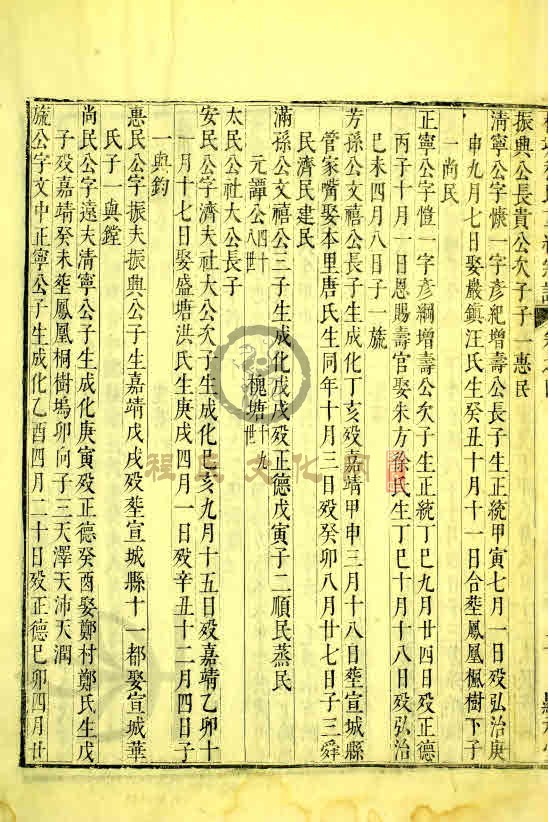 振興公長貴公次子子一惠民
清寧公字悚一字彥紀增壽公長子生正統甲寅七月一日歿弘治庚
申九月七日娶嚴鎮汪氏生癸丑十月十一日合塟鳳凰楓樹下子
一尚民
正寧公字愷一字彥綱增壽公次子生正統丁巳九月廿四日歿正德
丙子十月一日恩賜壽官娶朱方徐氏生丁巳十月十八日歿弘治
己未四月八日子一旒
芳孫公文禧公長子生成化丁亥歿嘉靖甲申三月十八日塟宣城縣
管家嘴娶本里唐氏生同年十月三日歿癸卯八月廿七日子三舜
民濟民建民
滿孫公文禧公三子生成化戊戌歿正德戊寅子二順民蒸民
元譚公四十八世 槐塘十九世
太民公社大公長子
安民公字濟夫社大公次子生成化己亥九月十五日歿嘉靖乙卯十
一月十七日娶盛塘洪氏生庚戌四月一日歿辛丑十二月四日子
一與鈞
惠民公字振夫振興公子生嘉靖戊戌歿塟宣城縣十一都娶宣城華
氏子一與鏜
尚民公字遠夫清寧公子生成化庚寅歿正德癸酉娶鄭村鄭氏生戊
子歿嘉靖癸未塟鳳凰桐樹塢卯向子三天澤天沛天潤
旒公字文中正寧公子生成化乙酉四月二十日歿正德己卯四月廿
程氏文化网